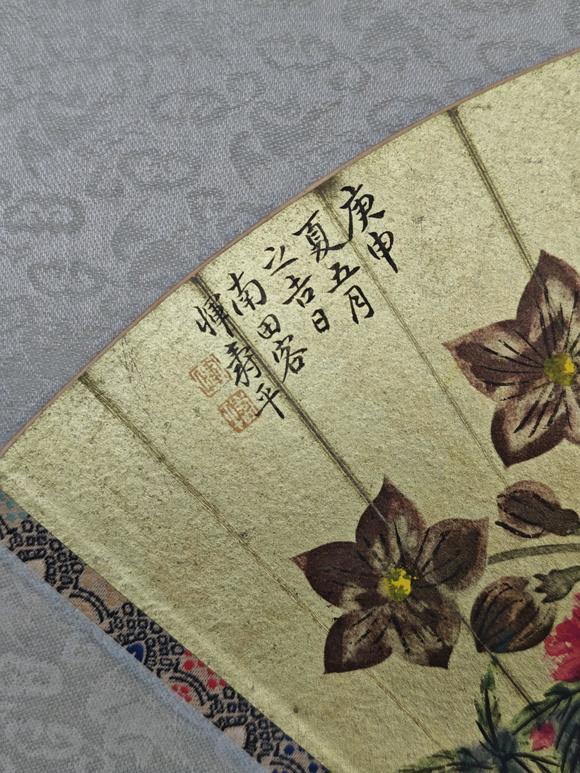 庚申
夏五月
之吉日
南田客
惲壽平